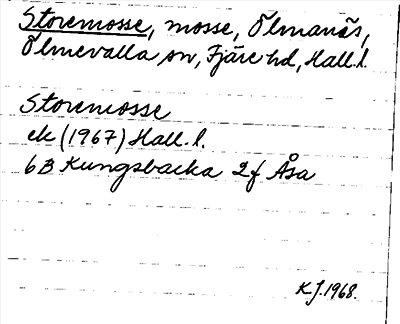 Storemosse, mosse, Ölmanäs,
Ölmevalla sn, Fjäre hd, Hall. l.
Storemosse
ek (1967) Hall. l.
6B Kungsbacka 2f Åsa
K.J. 1968.